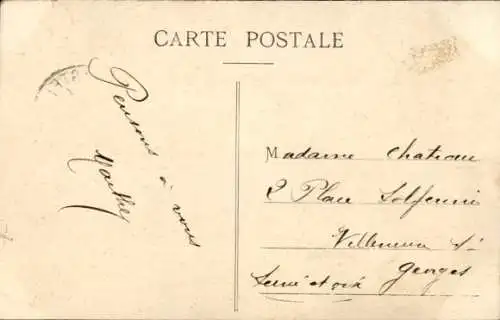 CARTE POSTALE
Pensons à vous
Marthe
Madame Chateau
2 Place Solferino
Villeneuve St
Georges
Seine et oise